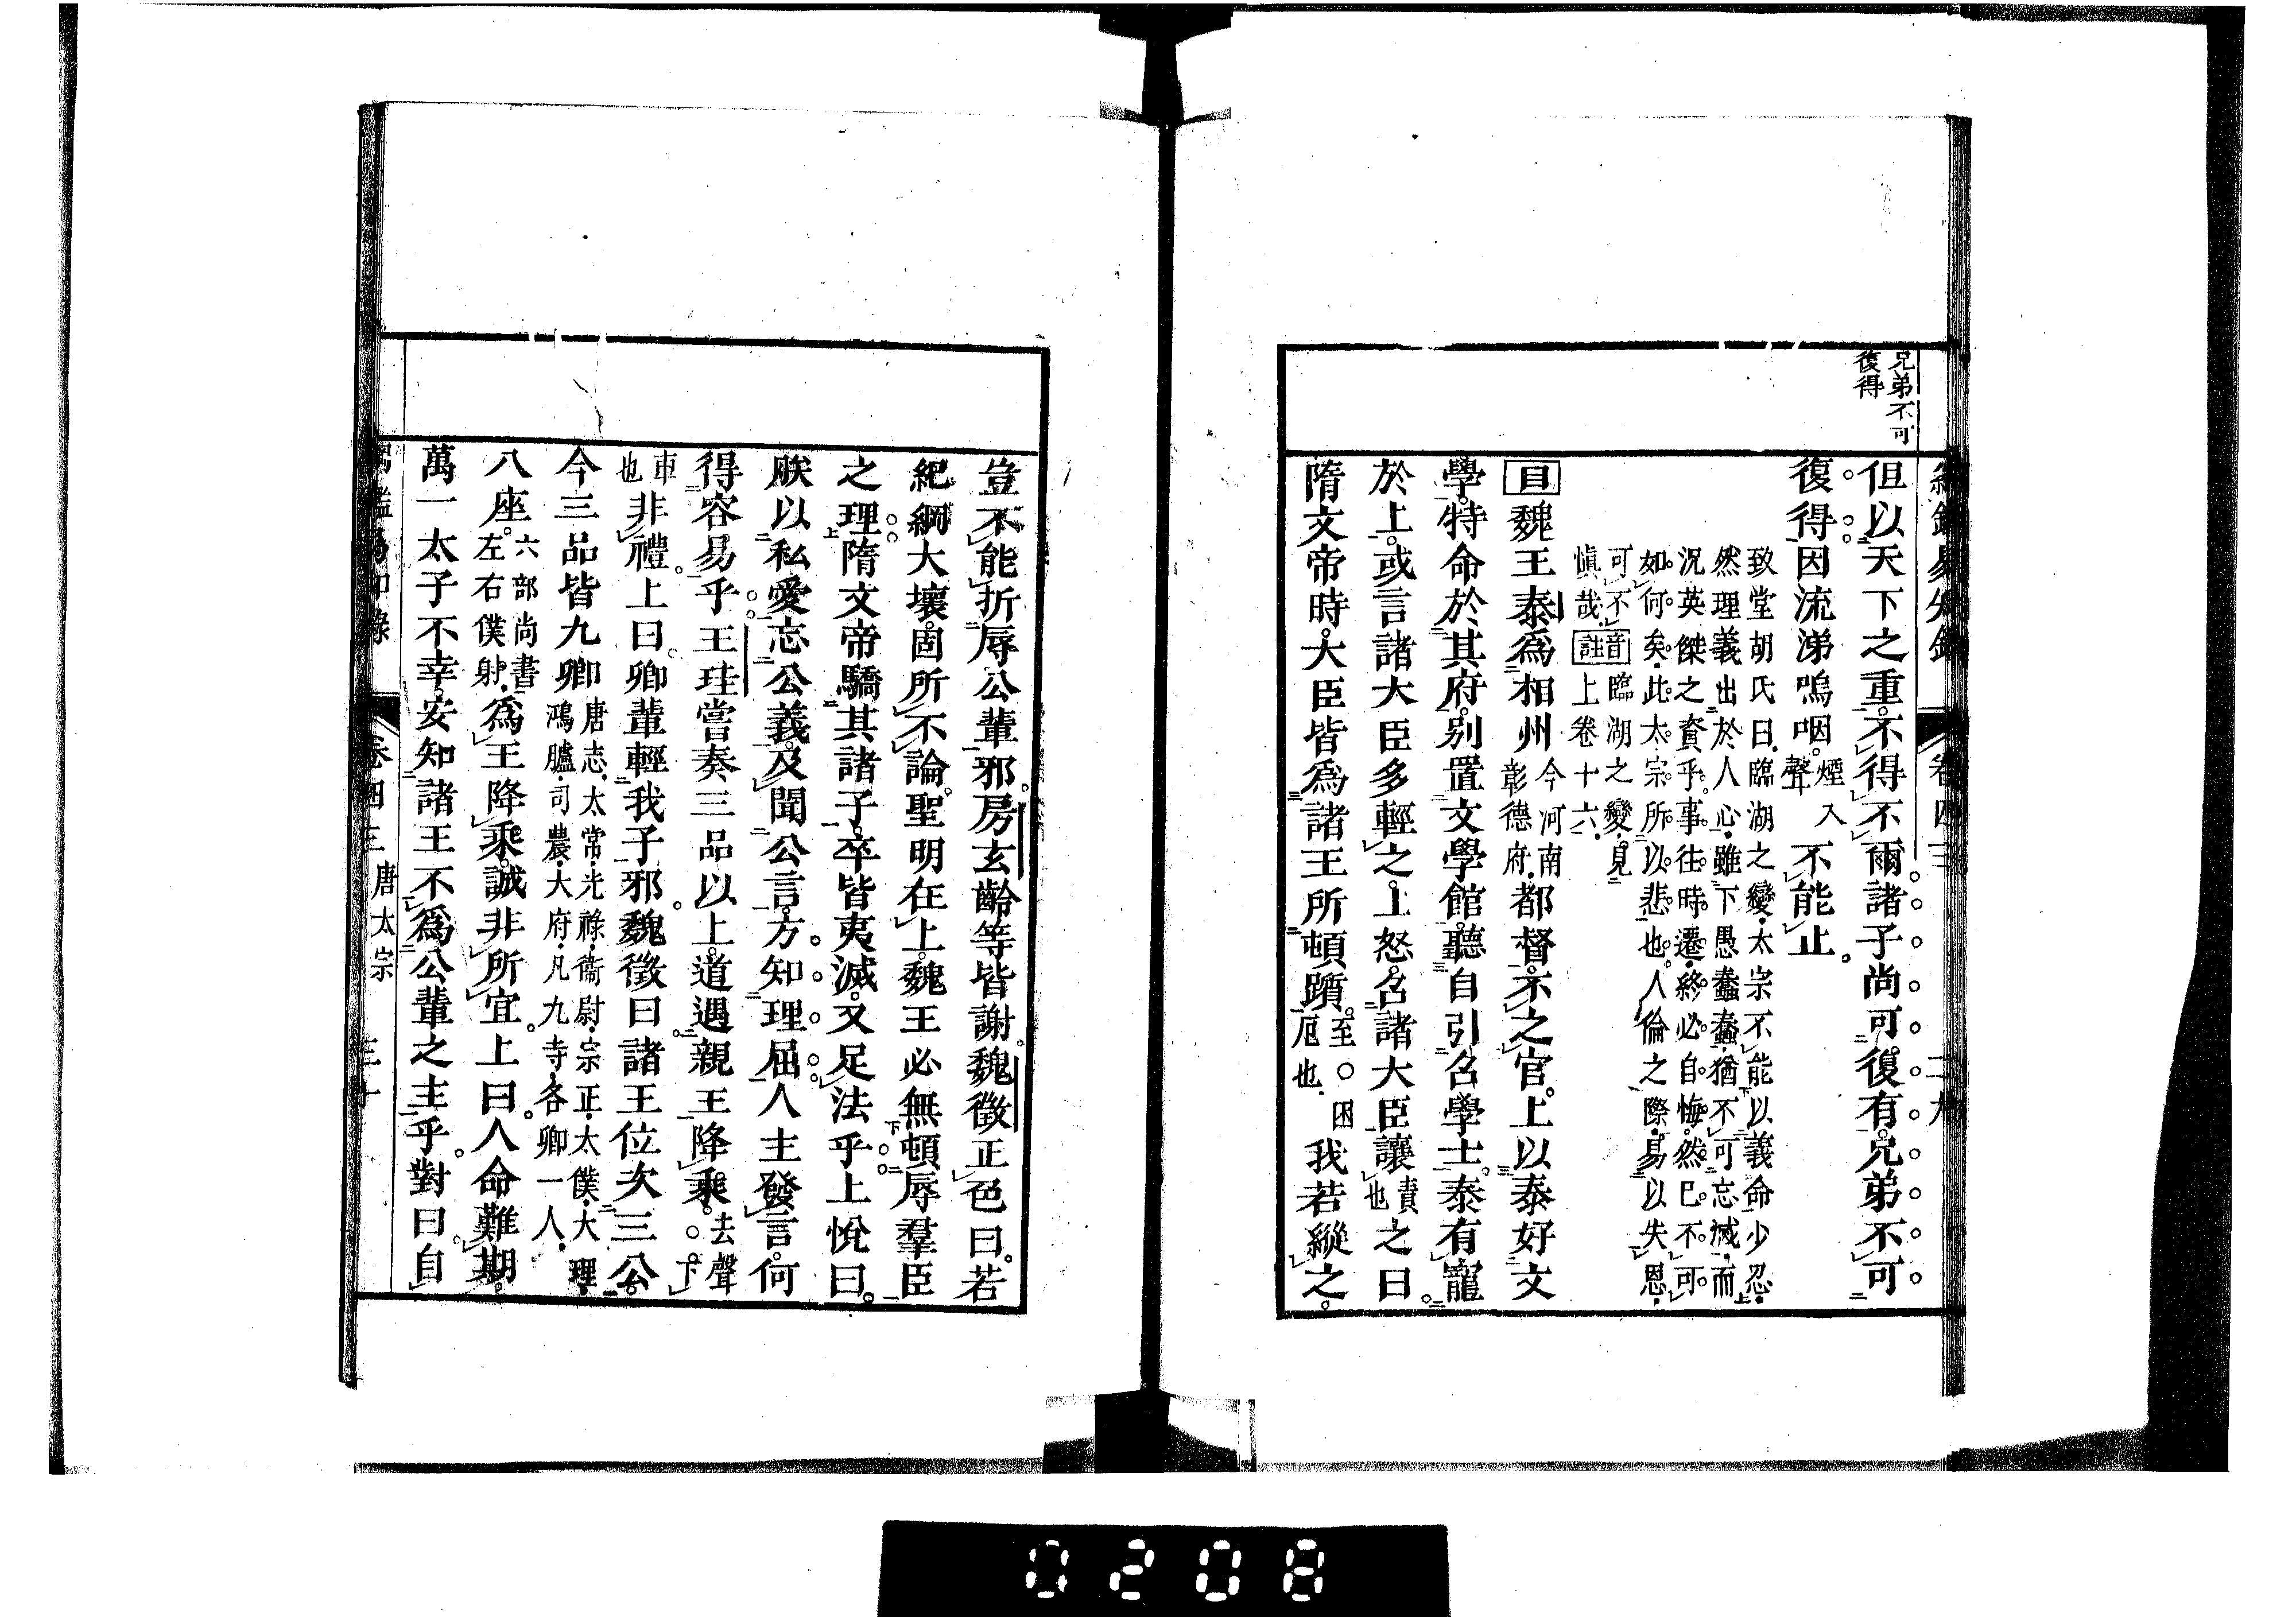 兄弟不可
復得
卷四三
二九
但以天下之重。不得不爾。諸子尚可復有。兄弟不可
復得。因流涕嗚咽。煙入聲不能止。
致堂胡氏曰、臨湖之變、太宗不能以義命少忍、
然理義出於人心、雖下愚蠢蠢、猶不可忘滅、而
況英傑之資乎。事往時遷、終必自悔。然已不可
如何矣。此太宗所以悲也。人倫之際、易以失恩、
可不
慎哉。音註臨湖之變、見上卷十六、
目魏王泰爲相州今河南彰德府。都督。不之官。上以泰好文
學。特命於其府。別置文學館。聽自引名學士。泰有寵
於上。或言諸大臣多輕之。上怒。召諸大臣讓責也之曰
隋文帝時。大臣皆爲諸王所頓躓。至○困厄也、我若縱之。
豈不能折辱公輩邪。房玄齡等皆謝。魏徵正色曰。若
紀綱大壞。固所不論。聖明在上。魏王必無頓辱羣臣
之理。隋文帝驕其諸子。卒皆夷滅。又足法乎。上悅曰。
朕以私愛忘公義。及聞公言。方知理屈。人主發言。何
得容易乎。王珪嘗奏三品以上。道遇親王降乘。去聲○下
車也非禮。上曰。卿輩輕我子邪。魏徵曰。諸王位次三公。
今三品皆九卿唐志、太常、光祿、衞尉、宗正、太僕、大理、鴻臚、司農、大府、凡九寺、各卿一人、
八座。六部尚書左右僕射、爲王降乘。誠非所宜。上曰。人命難期。
萬一太子不幸。安知諸王不爲公輩之主乎。對曰。自
卷四三 唐太宗 三十